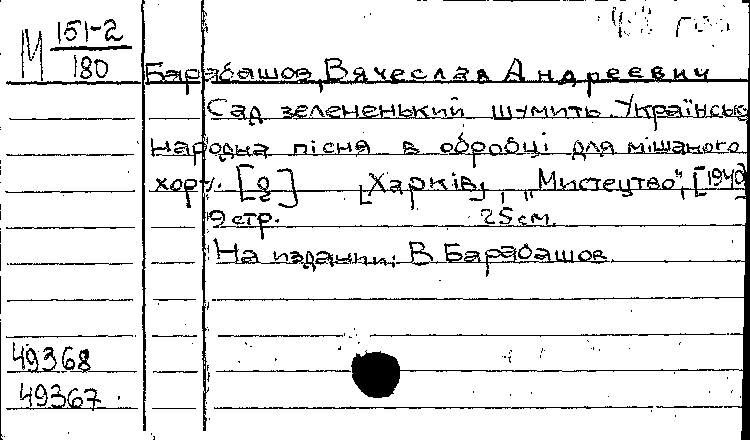 М 151-2
180
Барабашов, Вячеслав Андреевич
Сад зелененький шумить. Українськ
народна пісня в обробці для мішаного
хору. [ ] [Харків], „Мистецтво", [1940]
9 стр. 25 см.
На издании: В Барабашов.
49368
49367.